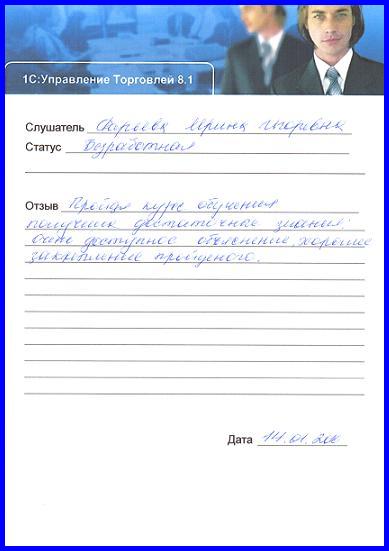 1С:Управление Торговлей 8.1
Слушатель Ирина Игоревна
Статус Безработная
Отзыв Пройдя курс обучения
получила достаточные знания,
доступное объяснение, хорошее
закрепление пройденого.
Дата 14.01.200